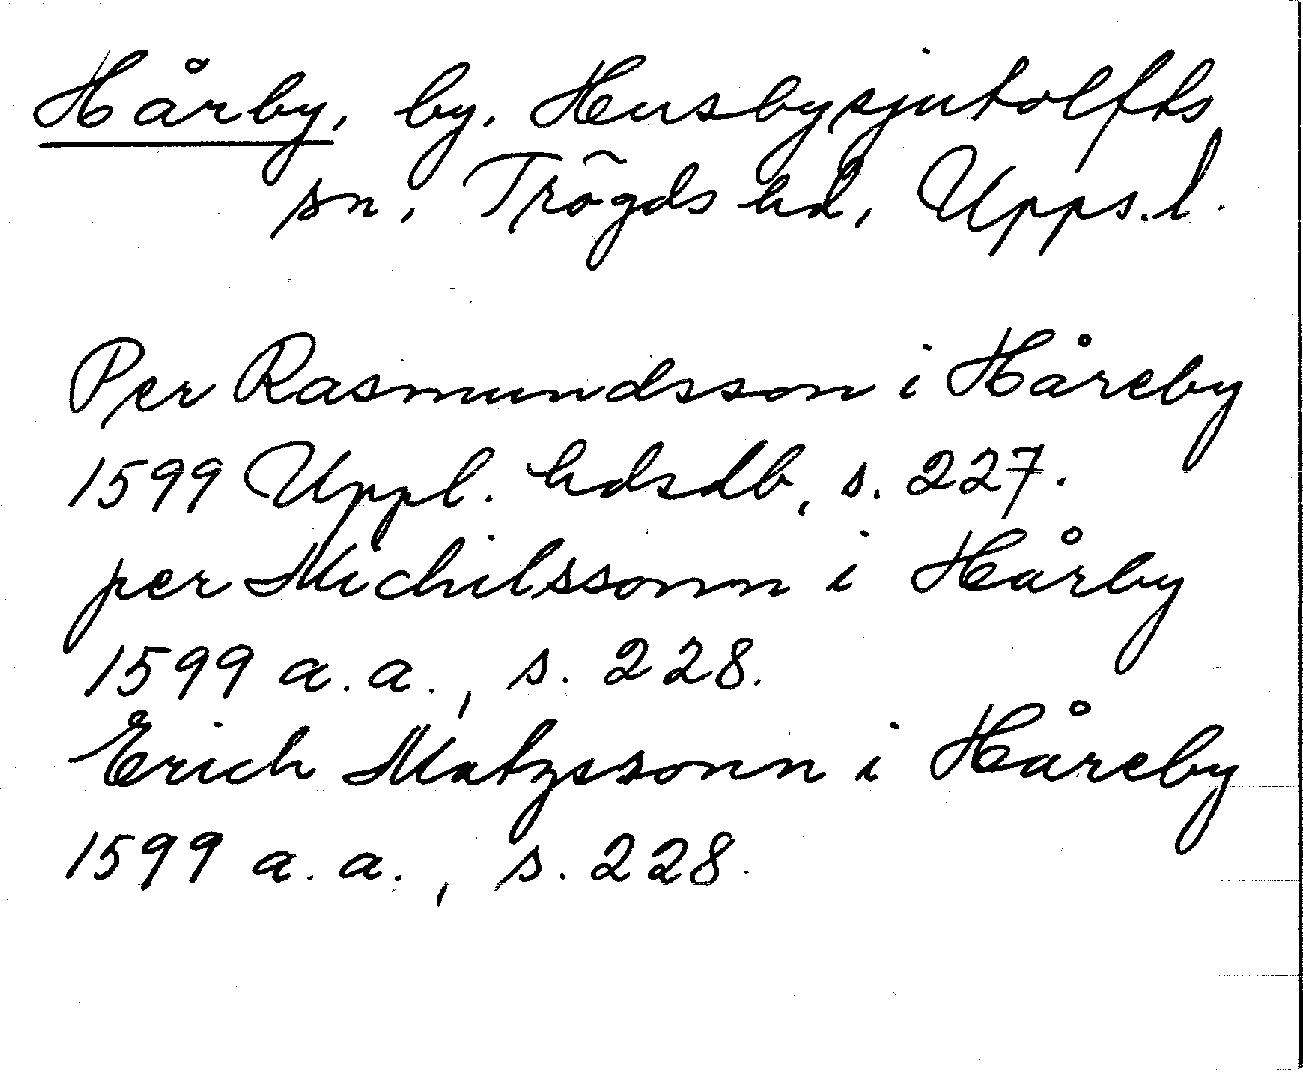 Hårby, by. Husbysjutolfts
sn, Trögds hd, Upps.l.
Per Rasmundsson i Håreby
1599 Uppl. hdsdb, s. 227.
per Michilssonn i Hårby
1599 a.a., s. 228.
Erich Matzssonn i Håreby
1599 a.a., s. 228.